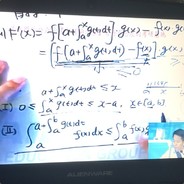 F'(x) = f[a+∫ₐˣg(t)dt]·g(x) - f(x)·g(
= [f[a+∫ₐˣg(t)dt] - f(x)]·g(x)
a+∫ₐˣg(t)dt ≤ x
(I) 0 ≤ ∫ₐˣg(t)dt ≤ x-a, x∈[a,b]
(II) ∫ₐ^(a+∫ₐᵇg(t)dt) f(x)dx ≤ ∫ₐᵇf(x)
ALIENWARE